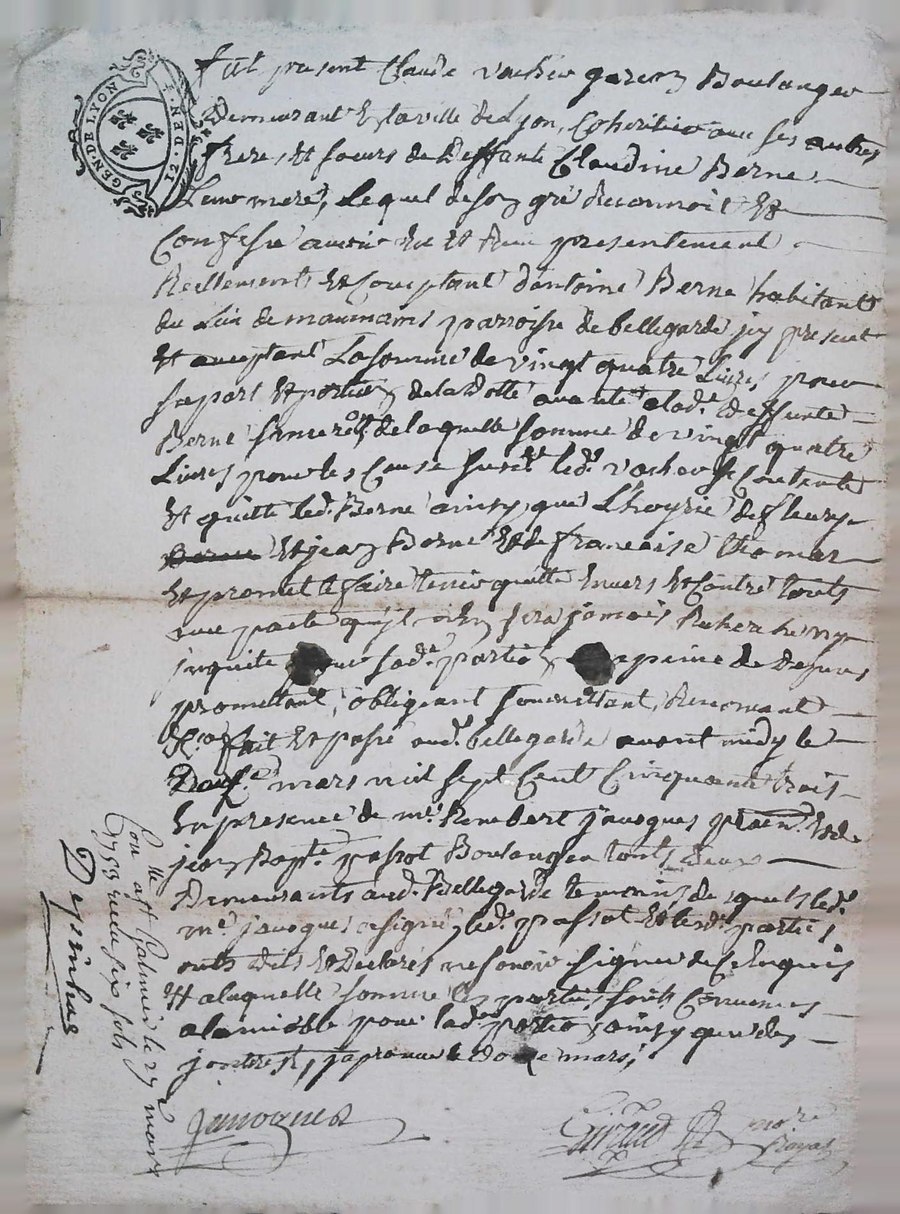 GEN. DE LYON
Fut present Claude Vacher garçon Boulanger
Demeurant En la ville de Lyon, Coheritier avec ses autres
frere, Et soeurs de Deffante Claudine Berne
Leur mere, Lequel de son gré Reconnoit Et
Confesse avoir Eu Et Receu presentement
Reellement Et Comptant d'antoine Berne habitant
du Lieu de maumans parroisse de bellegarde jcy present
Et acceptant La somme de vingt quatre Livres pour
sa part Et portion de la Dotte a la de. Deffunte
Berne sa mere de laquelle somme de vingt quatre
Livres pour les Cause susd. led. vacher se Contente
Et quitte led. Berne ainsy que L'hoyrie de fleury
Berne Et jean Berne Et de francoise thomas
Et promet le faire tenir quitte Envers Et Contre touts
avec pacte qu'jl n'En sera jamais Recherché ny
jnquité pour sade. portion a peine de Depens
promettant, obligeant soumettant, Renoncant
Et a. fait Et passé aud. bellegarde avant midy le
mars mil sept Cent Cinquante trois
En presence de me. Rembert jauoques Et de
jean Bapte. passot Boulanger touts deux
Demeurants aud. Bellegarde temoins desquels led.
me. jauoques a signé, led. passot Et lesd. parties
onts dits Et Declarés ne sçavoir signer de Ce Enquis
Et a laquelle somme les parties sonts Convenues
a l'amiable pour lade. portion ainsy que des
jnterest, japrouve Le Doze mars,
jauoques
Giraud
Con lle a st Galmier le 27 mars
1753 reçu six sols
Desinhes